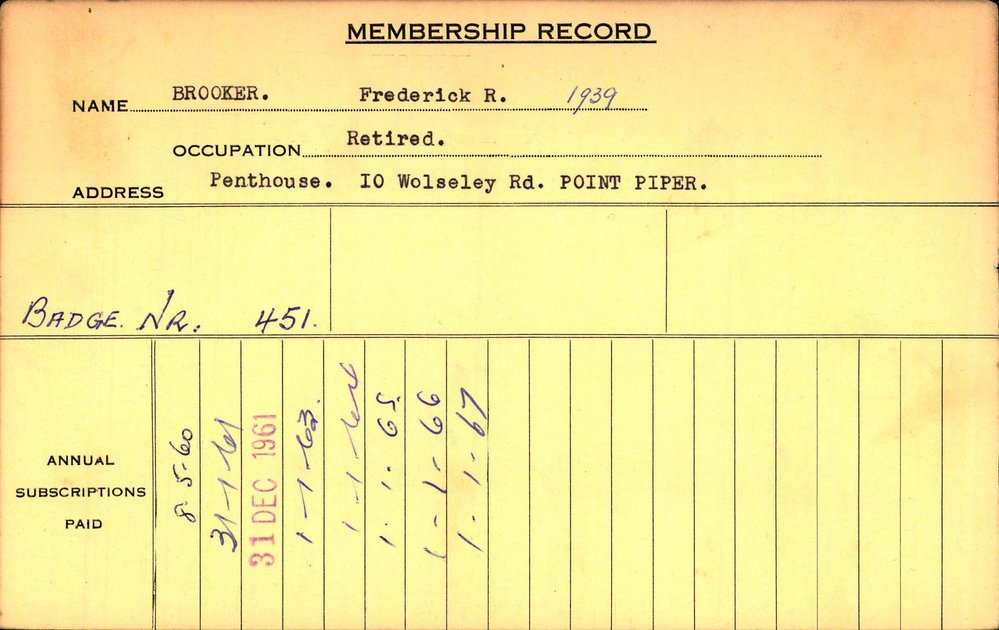 MEMBERSHIP RECORD
NAME BROOKER. Frederick R. 1939
OCCUPATION Retired.
ADDRESS Penthouse. IO Wolseley Rd. POINT PIPER.
BADGE. NR. 451.
ANNUAL
SUBSCRIPTIONS
PAID
8-5-60
31-1-61
31 DEC 1961
1-1-63.
1-1-64
1.1.65.
1-1-66
1-1-67